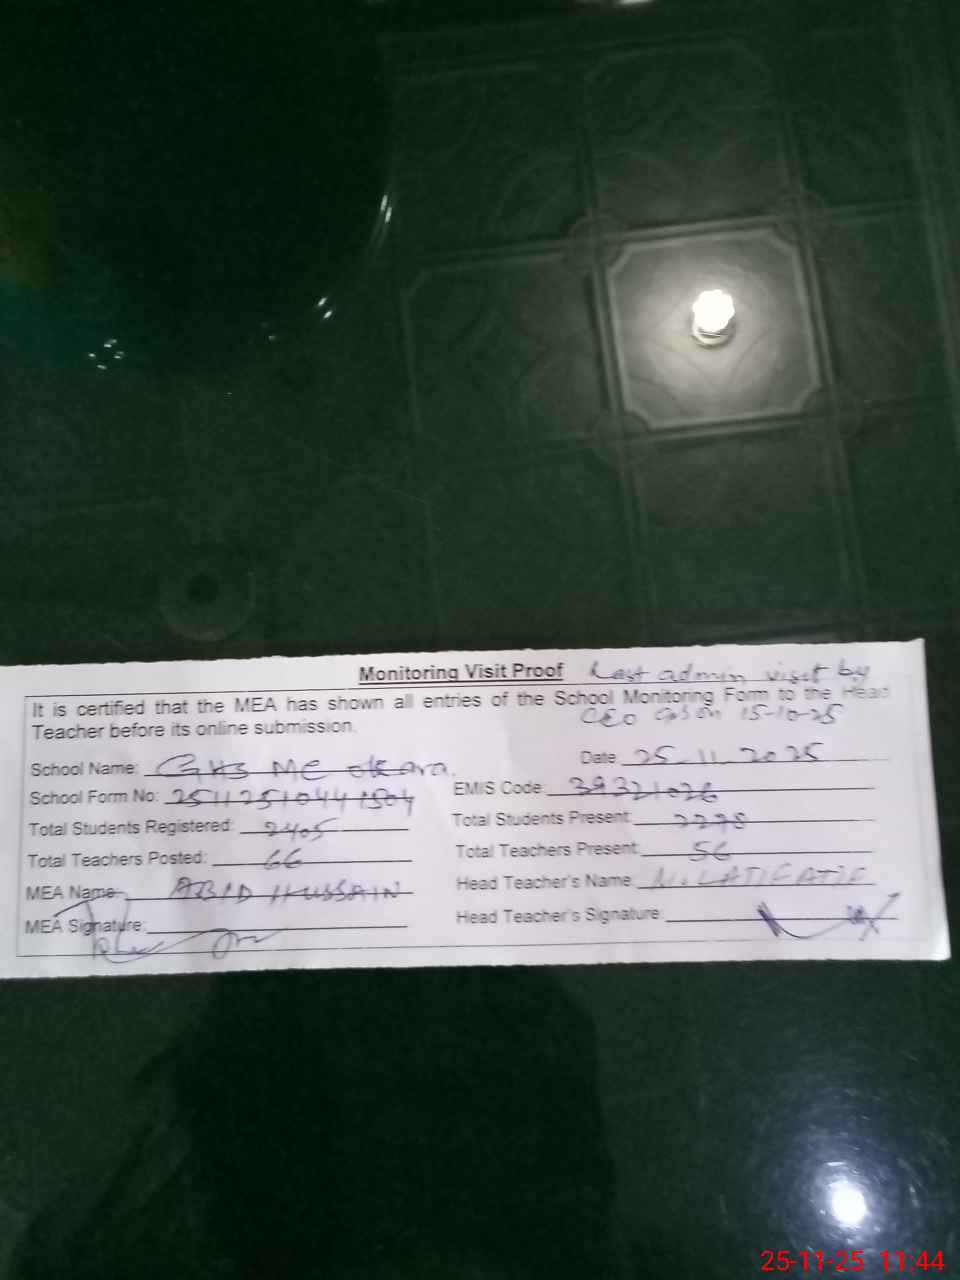 Monitoring Visit Proof Last admin visit by
It is certified that the MEA has shown all entries of the School Monitoring Form to the Head
CEO on 15-10-25
Teacher before its online submission.
School Name: GHS MC okara. Date: 25-11-2025
School Form No: 25112510441504 EMIS Code: 39321026
Total Students Registered: 2405 Total Students Present: 2278
Total Teachers Posted: 66 Total Teachers Present: 56
MEA Name: ABID HUSSAIN Head Teacher's Name:
MEA Signature: Head Teacher's Signature:
25-11-25 11:44